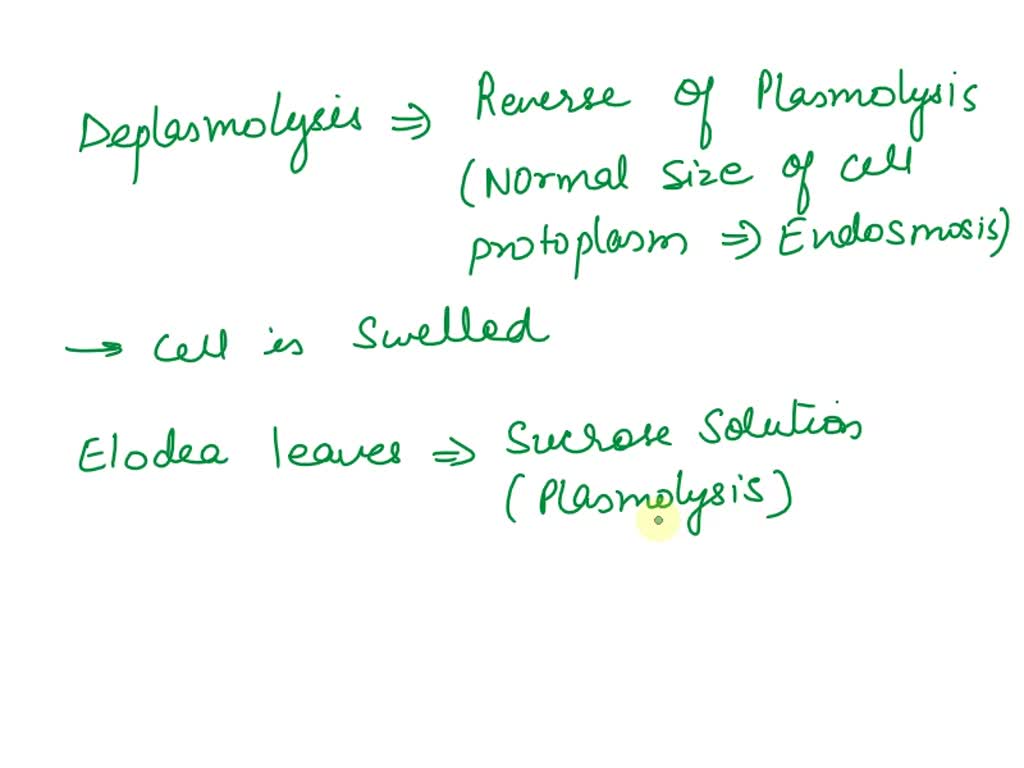 Deplasmolysis ⇒ Reverse of Plasmolysis
(Normal size of cell
protoplasm ⇒ Endosmosis)
→ cell is swelled
Elodea leaves ⇒ Sucrose solution
(Plasmolysis)